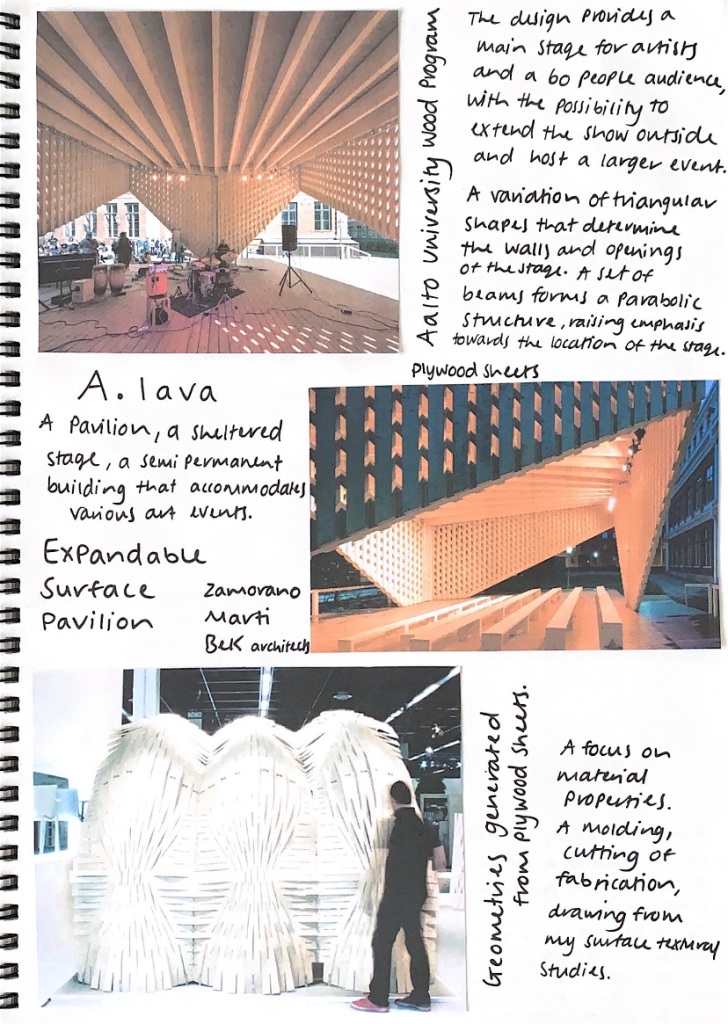 Aalto University Wood Program
The design provides a
main stage for artists
and a 60 people audience,
with the possibility to
extend the show outside
and host a larger event.
A variation of triangular
shapes that determine
the walls and openings
of the stage. A set of
beams forms a parabolic
structure, raising emphasis
towards the location of the stage.
Plywood sheets
A. lava
A Pavilion, a sheltered
stage, a semi permanent
building that accommodates
various art events.
Expandable
Surface
Pavilion
Zamorano
Marti
BeK architects
Geometries generated
from plywood sheets.
A focus on
material
properties.
A molding,
cutting of
fabrication,
drawing from
my surface textural
studies.